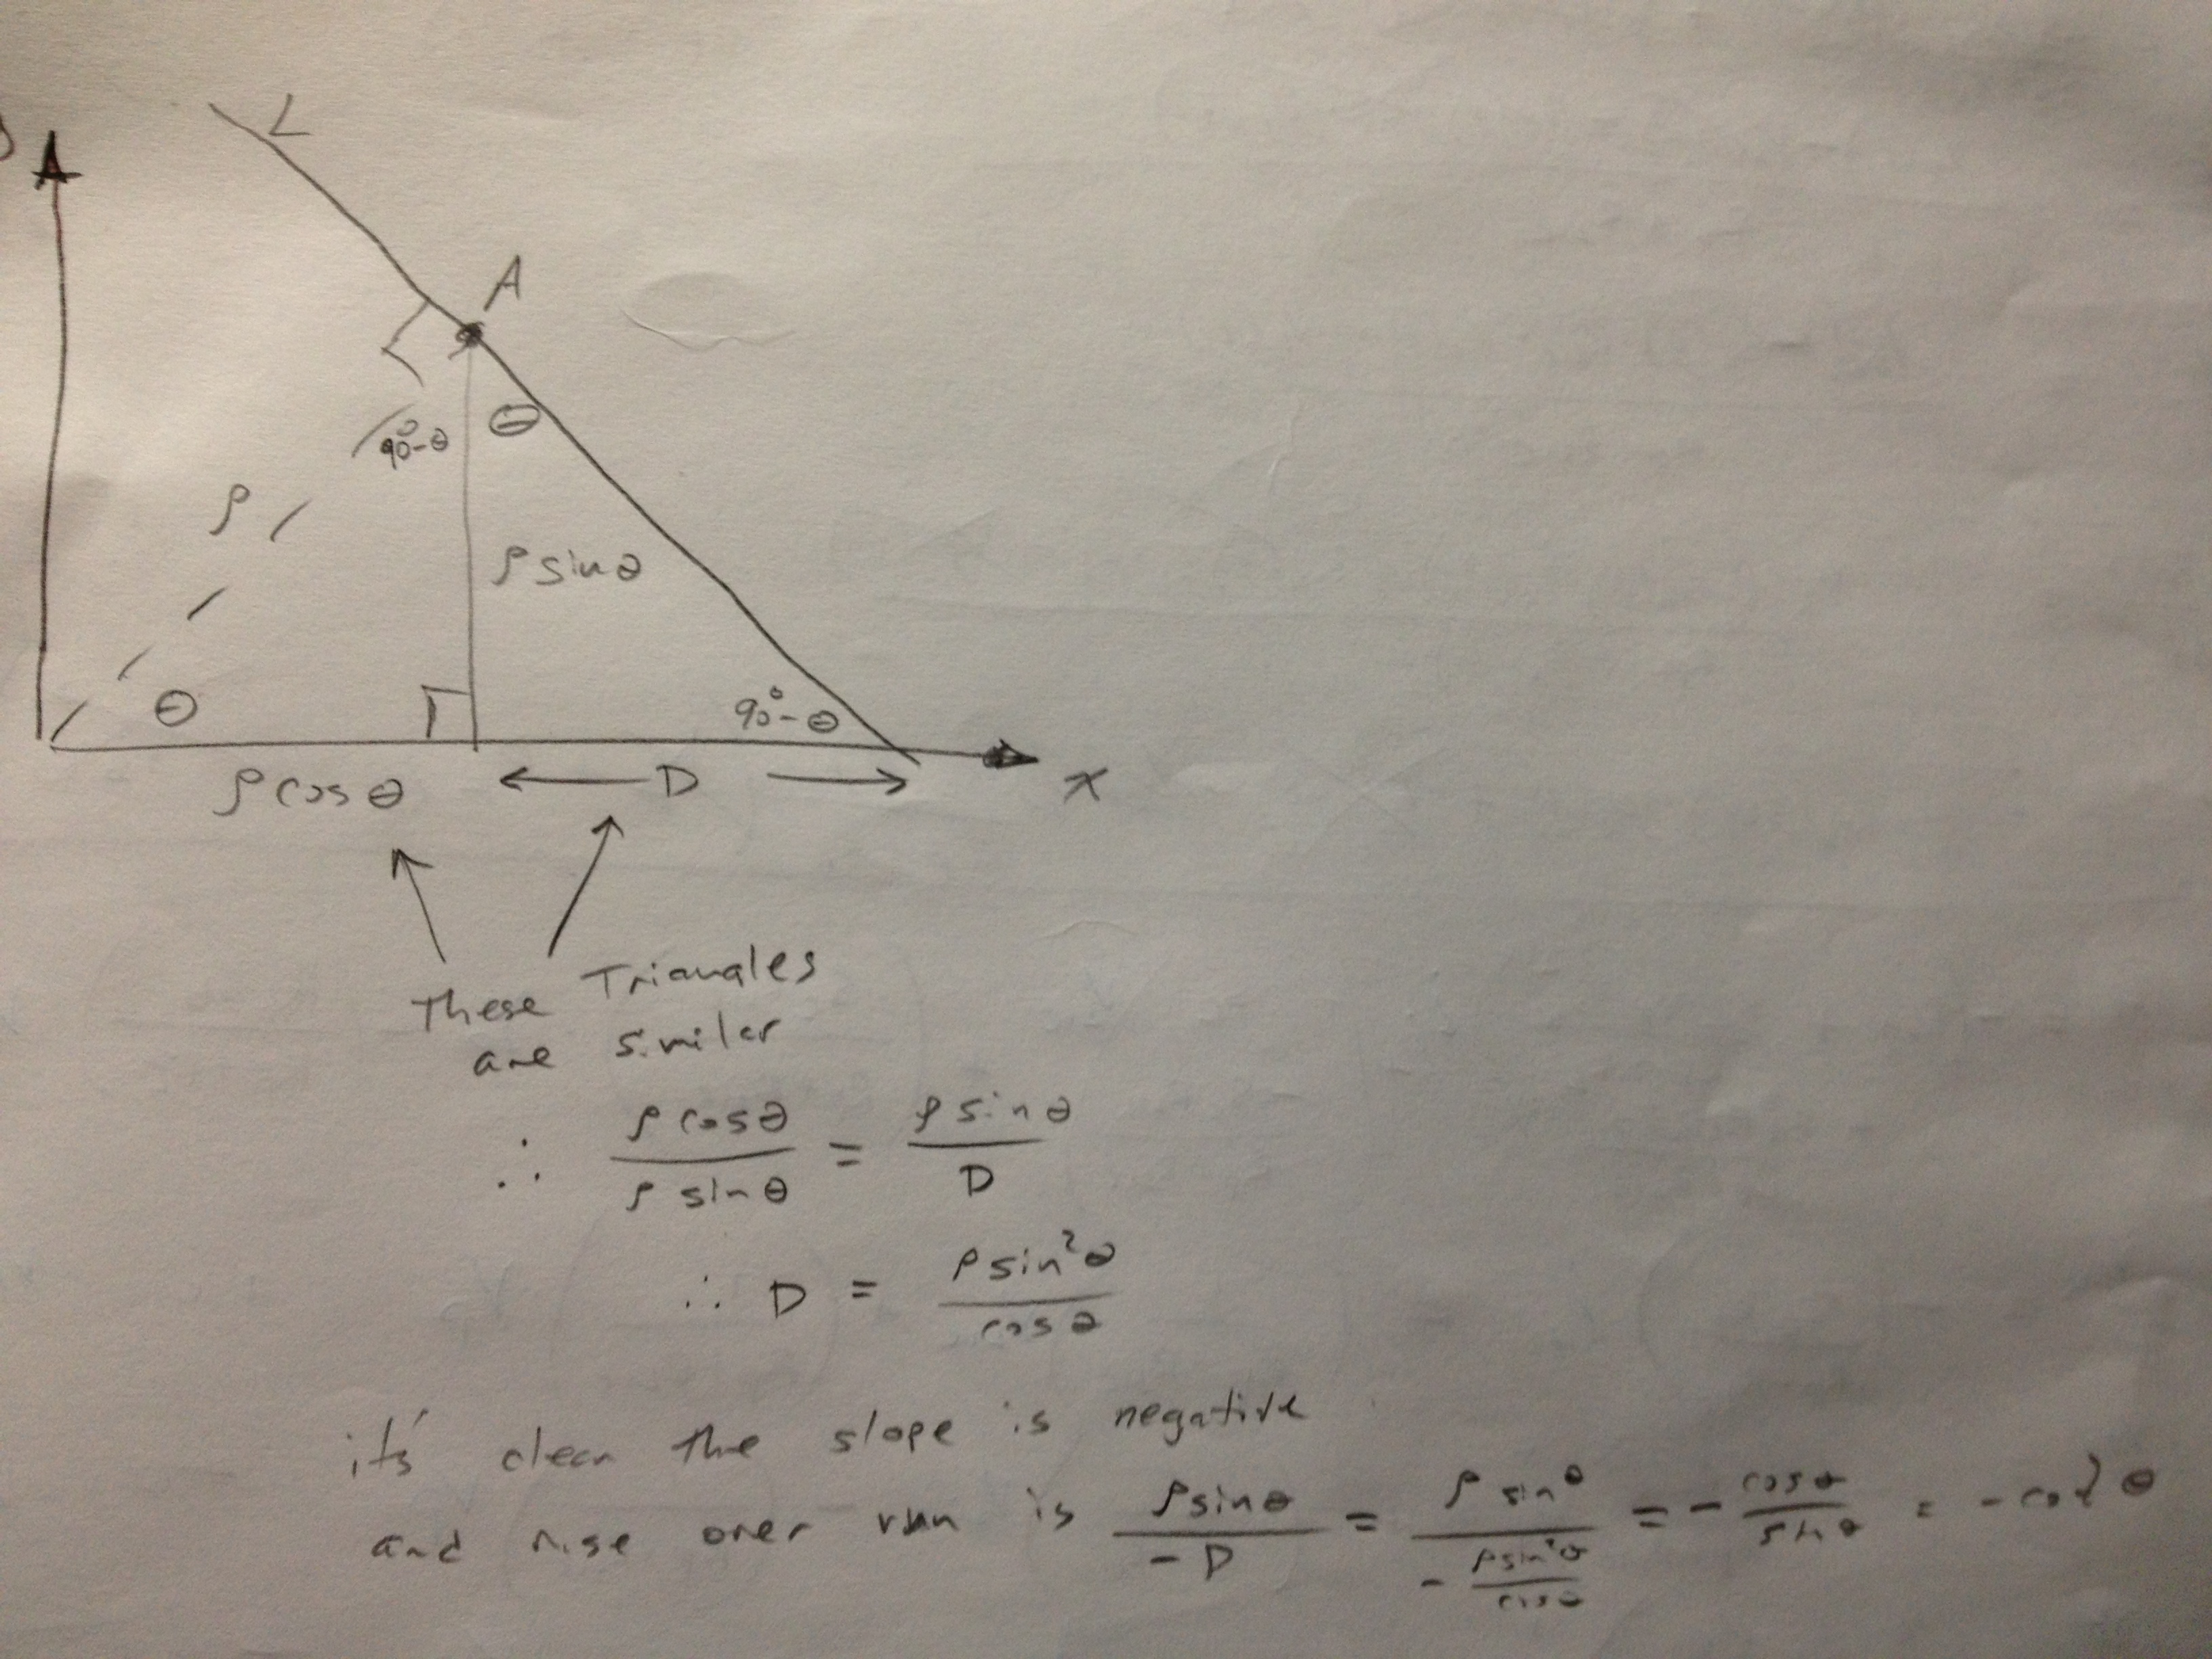 L
A
90°-θ θ
ρ
ρ sin θ
θ 90°-θ
ρ cos θ ← D → x
These Triangles
are similar
∴ ρ cos θ / ρ sin θ = ρ sin θ / D
∴ D = ρ sin²θ / cos θ
it's clear the slope is negative
and rise over run is ρ sin θ / -D = ρ sin θ / -(ρ sin²θ / cos θ) = - cos θ / sin θ = - cot θ